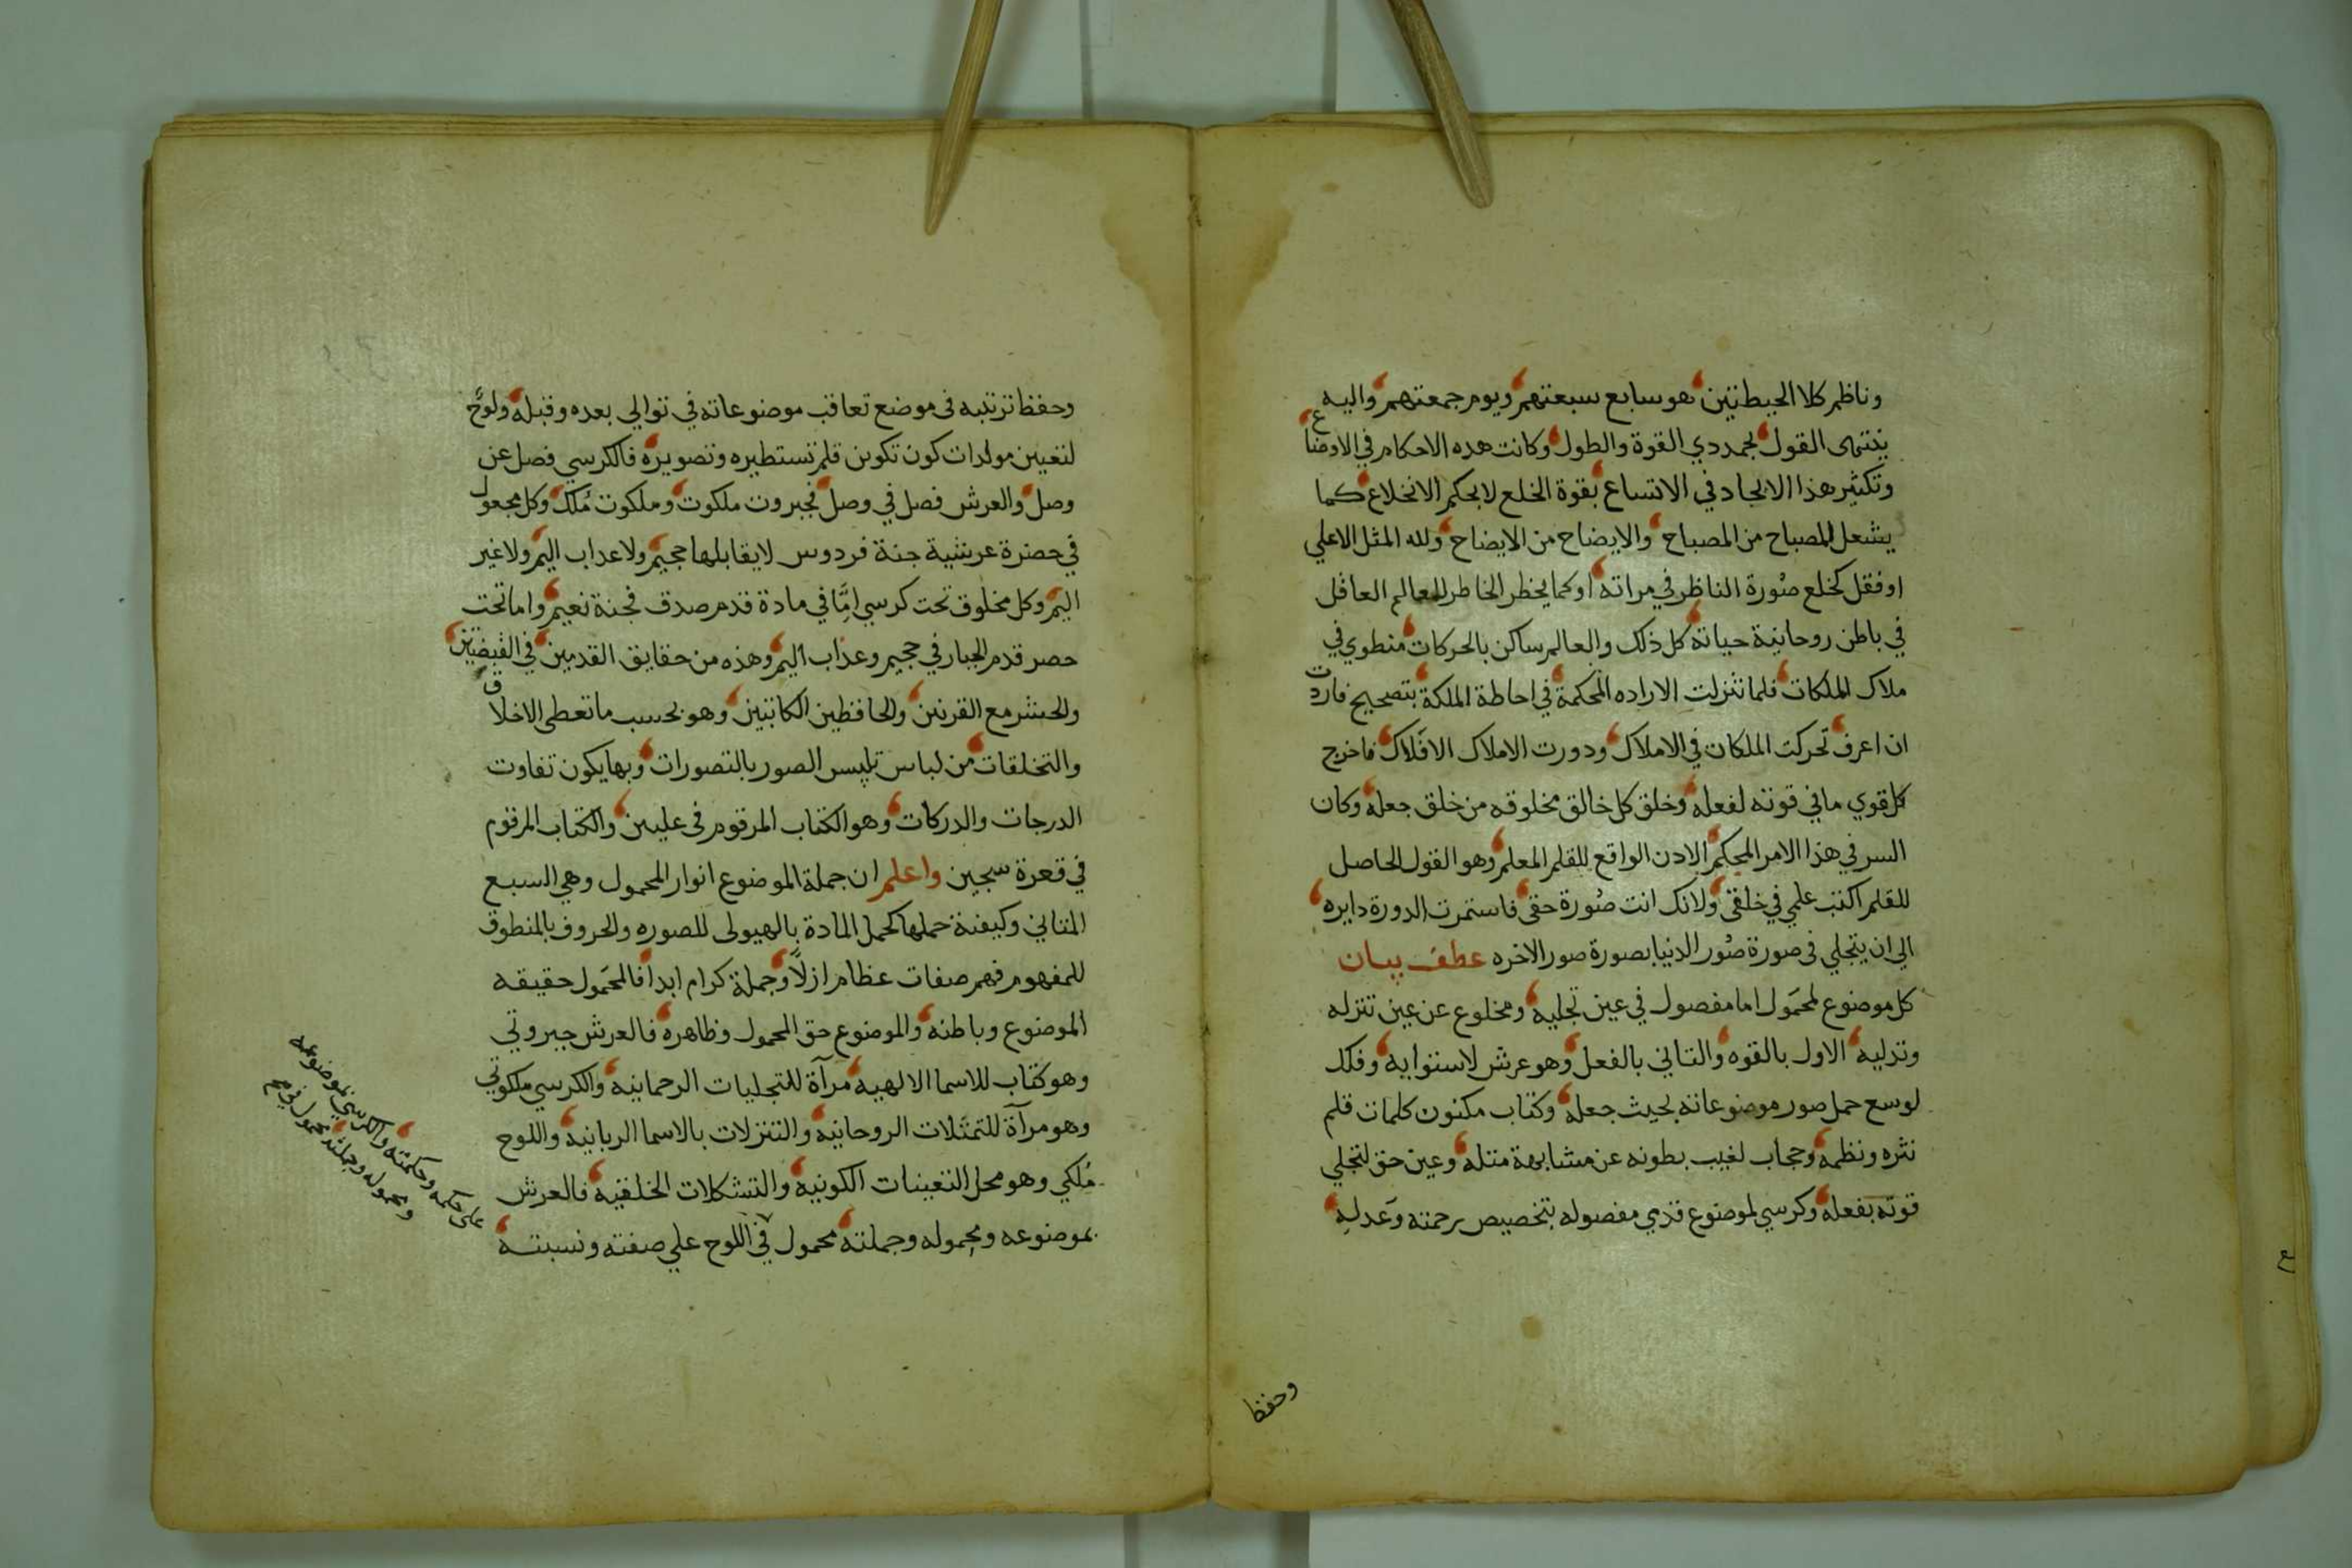 وناظم كلا الحيطتين هو سابع سبعتهم ويوم جمعتهم واليه
ينتهى القول بجمددي القوة والطول وكانت هده الاحكام في الاوضاع
وتكثير هذا الايجاد في الاتساع بقوة الخلع لا بحكم الانخلاع كما
يشعل المصباح من المصباح والايضاح من الايضاح ولله المثل الاعلي
او فقل كخلع صورة الناظر في مراته او كما يخطر الخاطر للعالم العاقل
في باطن روحانية حياته كل ذلك والعالم ساكن بالحركات منطوي في
ملاك الملكات فلما تنزلت الاراده المحكمة في احاطة الملكة بتصحيح فاردت
ان اعرف تحركت الملكات في الاملاك ودورت الاملاك الافلاك فاخرج
كل قوي ما في قوته لفعله وخلق كل خالق مخلوقه من خلق جعله وكان
السر في هذا الامر المحكم الاذن الواقع للقلم المعلم وهو القول الحاصل
للقلم اكتب علمي في خلقي ولانك انت صورة حقي فاستمرت الدورة دايره
الي ان يتجلي في صورة صور الدنيا بصورة صور الاخره عطف بيان
كل موضوع لمحمول اما مفصول في عين تجليه ومخلوع عن عين تنزله
وتدليه الاول بالقوه والثاني بالفعل وهو عرش لاستوايه وفلك
لوسع حمل صور موضوعاته بحيث جعله وكتاب مكنون كلمات قلم
نثره ونظمه وحجاب لغيب بطونه عن مشابهة مثله وعين حق لتجلي
قوته بفعله وكرسي لموضوع قدمي مفصوله بتخصيص رحمته وعدله
وحفظ
وحفظ ترتيبه في موضع تعاقب موضوعاته في توالي بعده وقبله ولوح
لتعيين مولدات كون تكوين قلم تستطيره وتصويره فالكرسي فصل عن
وصل والعرش فصل في وصل فجبروت ملكوت وملكوت ملك وكل مجعول
في حضرة عرشية جنة فردوس لا يقابلها جحيم ولا عداب اليم ولا غير
اليم وكل مخلوق تحت كرسي اما في مادة قدم صدق فجنة نعيم واما تحت
حصر قدم الجبار في جحيم وعذاب اليم وهذه من حقايق القدمين في القبضتين
والحشر مع القرنين والحافظين الكاتبين وهو بحسب ما تعطي الاخلاق
والتخلقات من لباس تلبيس الصور بالتصورات وبها يكون تفاوت
الدرجات والدركات وهو الكتاب المرقوم في عليين والكتاب المرقوم
في قعرة سجين واعلم ان جملة الموضوع انوار المحمول وهي السبع
المثاني وكيفية حملها كحمل المادة بالهيولى للصوره والحروف بالمنطوق
للمفهوم فهم صفات عظام ازلا وجملة كرام ابدا فالمحمول حقيقه
الموضوع وباطنه والموضوع حق المحمول وظاهره فالعرش جبروتي
وهو كتاب للاسما الالهيه مرآة للتجليات الرحمانيه والكرسي ملكوتي
وهو مرآة للتمثلات الروحانيه والتنزلات بالاسما الربانيه واللوح
ملكي وهو محل التعينات الكونيه والتشكلات الخلقيه فالعرش
بموضوعه ومحموله وجملته محمول في اللوح علي صفته ونسبته
علي حكمه وحكمته والكرسي بموضوعه
ومحموله وجملته محمول